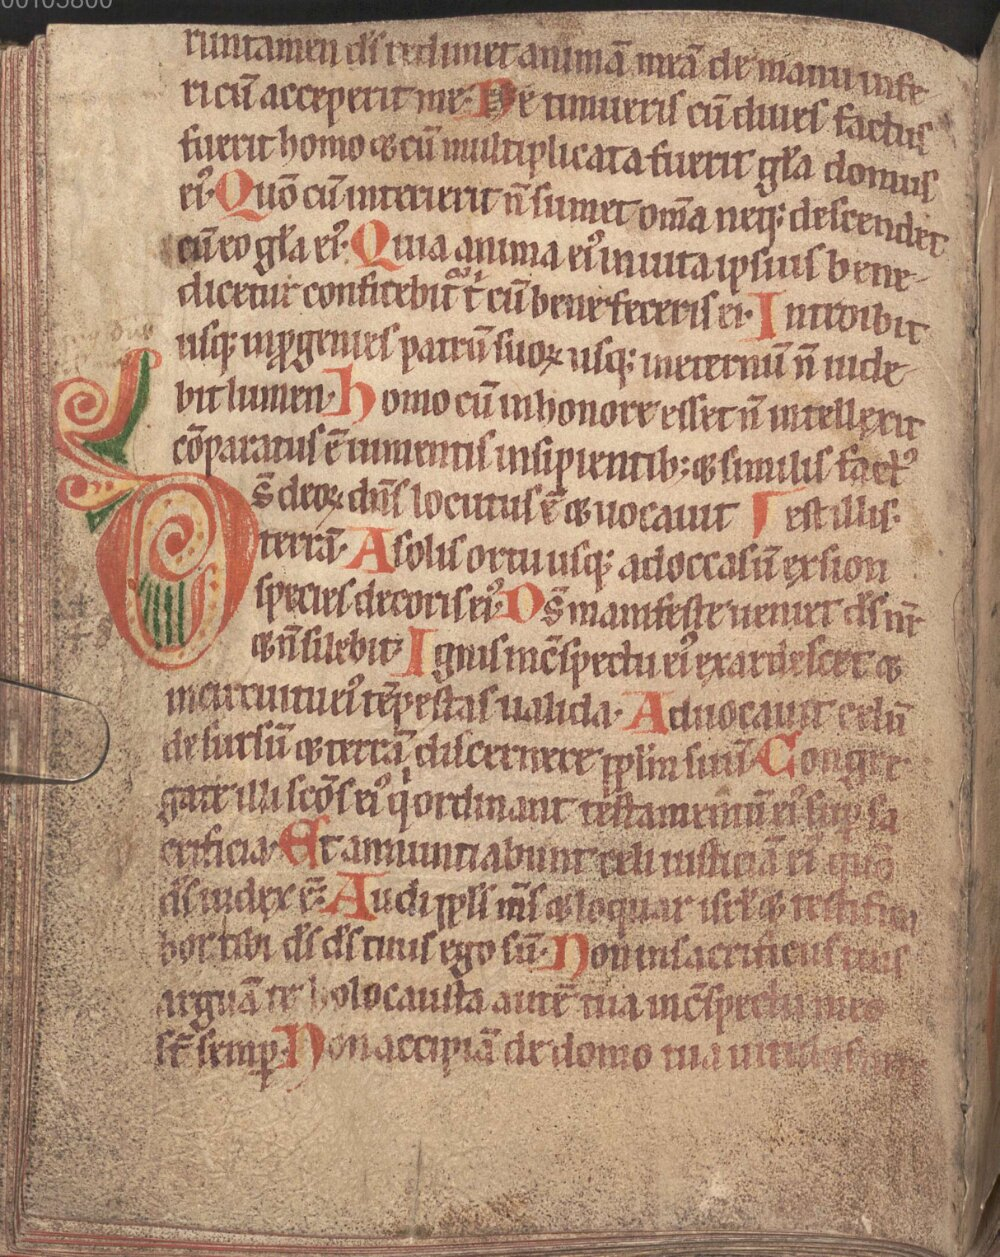 00105800
runtamen ds̄ redimet animā meā de manu infe
ri cū acceperit me. Ne timueris cū diues factus
fuerit homo ⁊ cū multiplicata fuerit gl̄a domus
ei᷒. Quō cū interierit n̄ sumet om̄a neqꝫ descendet
cū eo gl̄a ei᷒. Quia anima ei᷒ in uita ipsius bene
dicetur confitebit᷑ t̄ cū benefeceris ei. Introibit
usqꝫ in ꝓgenies patrū suoꝝ usqꝫ in eternū n̄ uide
bit lumen. Homo cū in honore esset n̄ intellexit
cōparatus ē iumentis insipientibꝫ ⁊ similis fact᷒
s̄ deoꝝ dn̄s locutus ē ⁊ uocauit est illis.
terrā. A solis ortu usqꝫ ad occasū ex sion
species decoris ei᷒. Ds̄ manifeste ueniet ds̄ nr̄
⁊ n̄ silebit. Ignis in c̄spectu ei᷒ exardescet ⁊
in circuitu ei᷒ tēpestas ualida. Aduocauit celū
de sursū ⁊ terrā discernere ppl̄m suū. Congre
gate illi scōs ei᷒ qͥ ordinant testamentū ei᷒ suꝑ sa
crificia. Et annuntiabunt celi iusticiā ei᷒ quō
ds̄ iudex ē. Audi ppl̄s ms̄ ⁊ loquar isrl̄ ⁊ testifica
bor tibi ds̄ ds̄ tuus ego sū. Non in sacrificiis tuis
arguā te holocausta autē tua in c̄spectu meo
st̄ semꝑ. Non accipiā de domo tua uitulos